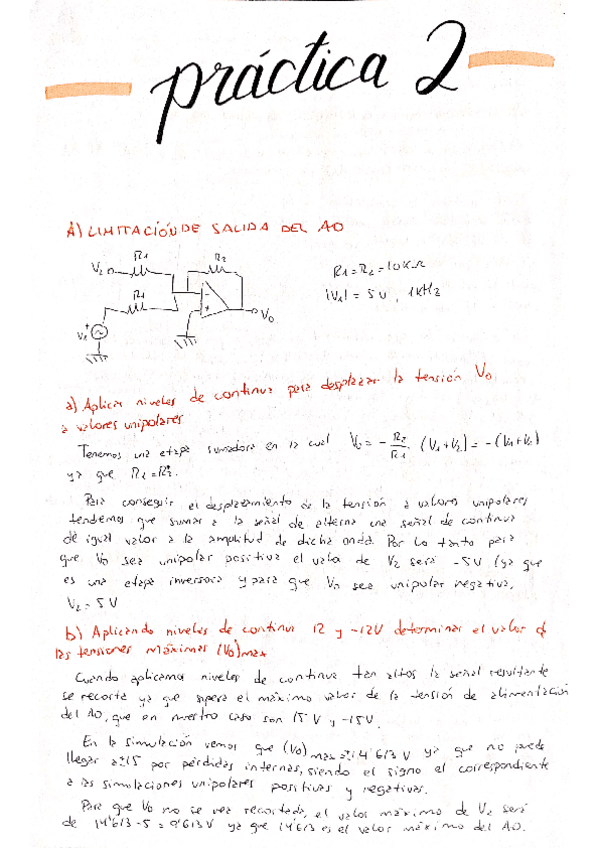 práctica 2
A) LIMITACIÓN DE SALIDA DEL AO
V2 R1 R2
R1 = R2 = 10KΩ
|V1| = 5 V, 1KHz
R1
V0
V1
a) Aplicar niveles de continua para desplazar la tensión V0
a valores unipolares
Tenemos una etapa sumadora en la cual V0 = - R2/R1 · (V1+V2) = -(V1+V2)
ya que R1=R2.
Para conseguir el desplazamiento de la tensión a valores unipolares
tendemos que sumar a la señal de alterna una señal de continua
de igual valor a la amplitud de dicha onda. Por lo tanto para
que V0 sea unipolar positiva el valor de V2 será -5V (ya que
es una etapa inversora y para que V0 sea unipolar negativa,
V2 = 5V
b) Aplicando niveles de continua 12 y -12V determinar el valor d
las tensiones máximas (V0)max
Cuando aplicamos niveles de continua tan altos la señal resultante
se recorta ya que supera el máximo valor de la tensión de alimentación
del AO, que en nuestro caso son 15V y -15V.
En la simulación vemos que (V0)max = ±14'613 V ya que no puede
llegar a ±15 por pérdidas internas, siendo el signo el correspondiente
a las simulaciones unipolares positivas y negativas.
Para que V0 no se vea recortada, el valor máximo de V2 será
de 14'613 - 5 = 9'613V ya que 14'613 es el valor máximo del AO.